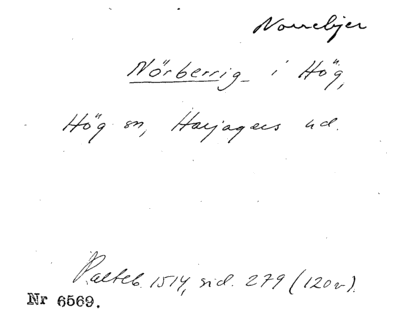 Norrebjer
Nörberrig i Hög,
Hög sn, Harjagers hd.
Palteb. 1514, sid. 279 (120v).
Nr 6569.